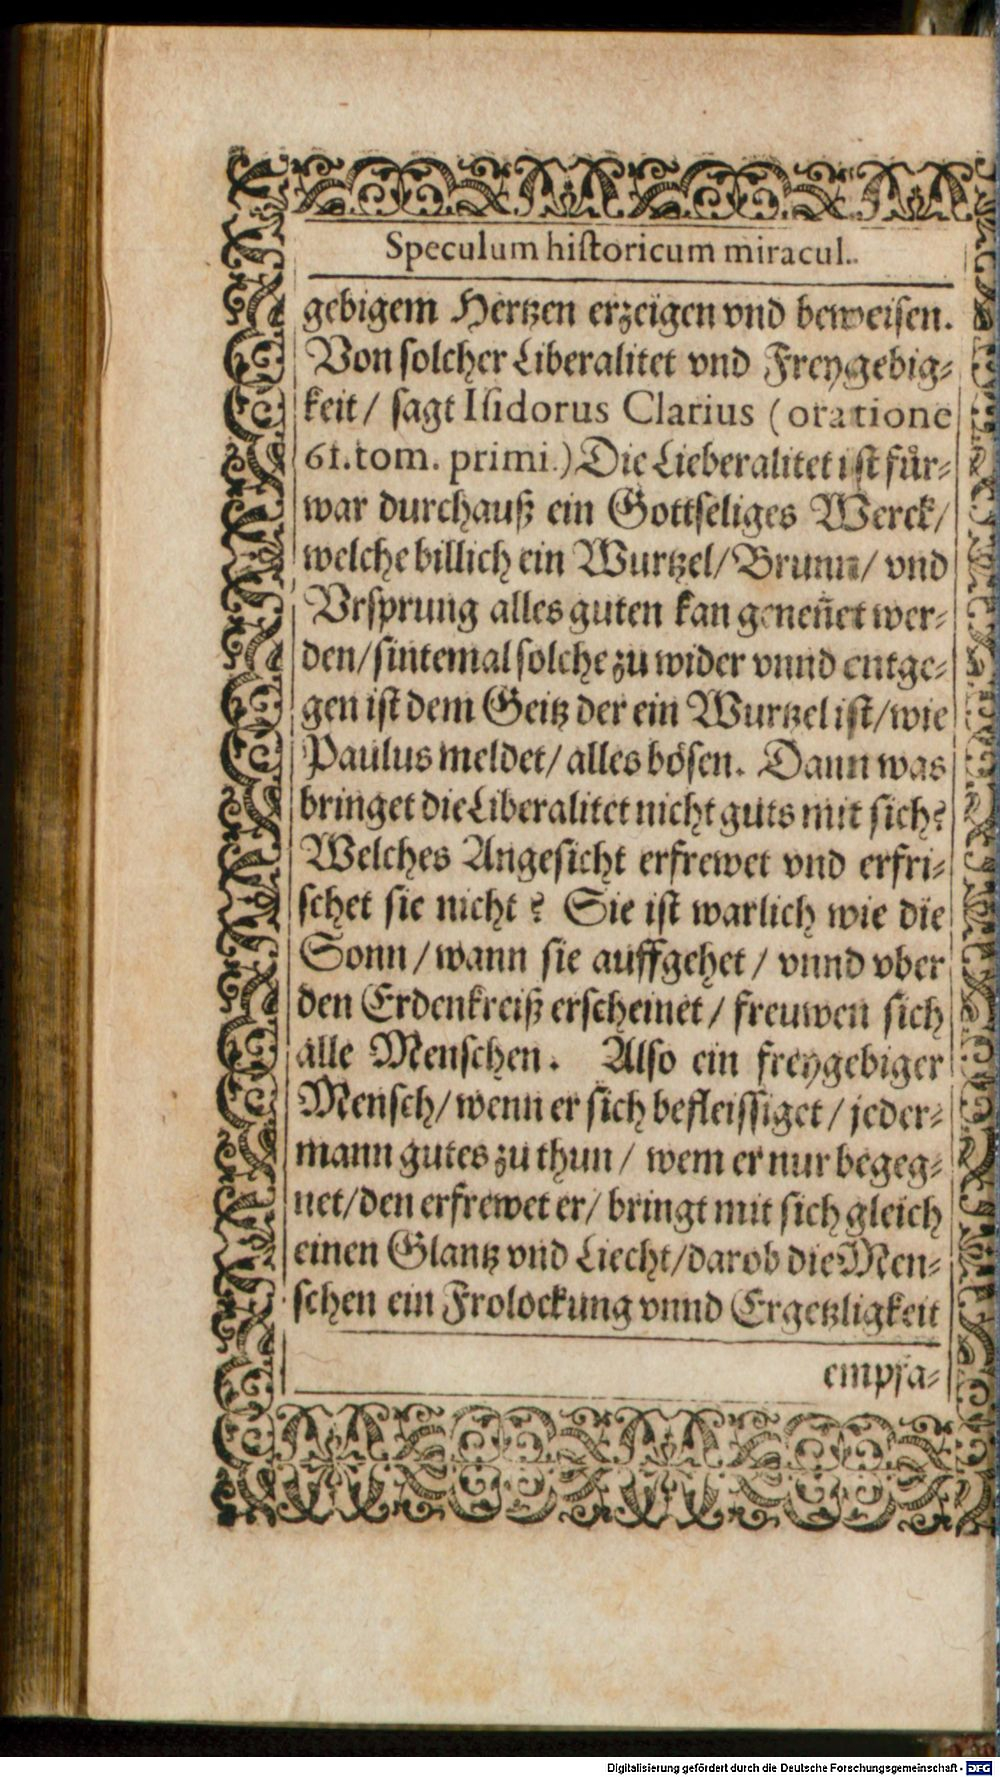 Speculum historicum miracul.
gebigem Hertzen erzeigen vnd beweisen.
Von solcher Liberalitet vnd Freygebig-
keit / sagt Isidorus Clarius (oratione
61. tom. primi.) Die Lieberalitet ist für-
war durchauß ein Gottseliges Werck /
welche billich ein Wurtzel / Brunn / vnd
Vrsprung alles guten kan geneñet wer-
den / sintemal solche zu wider vnnd entge-
gen ist dem Geitz der ein Wurtzel ist / wie
Paulus meldet / alles bösen. Dann was
bringet die Liberalitet nicht guts mit sich?
Welches Angesicht erfrewet vnd erfri-
schet sie nicht? Sie ist warlich wie die
Sonn / wann sie auffgehet / vnnd vber
den Erdenkreiß erscheinet / freuwen sich
alle Menschen. Also ein freygebiger
Mensch / wenn er sich befleissiget / jeder-
mann gutes zu thun / wem er nur begeg-
net / den erfrewet er / bringt mit sich gleich
einen Glantz vnd Liecht / darob die Men-
schen ein Frolockung vnnd Ergetzligkeit
empfa-
Digitalisierung gefördert durch die Deutsche Forschungsgemeinschaft - DFG